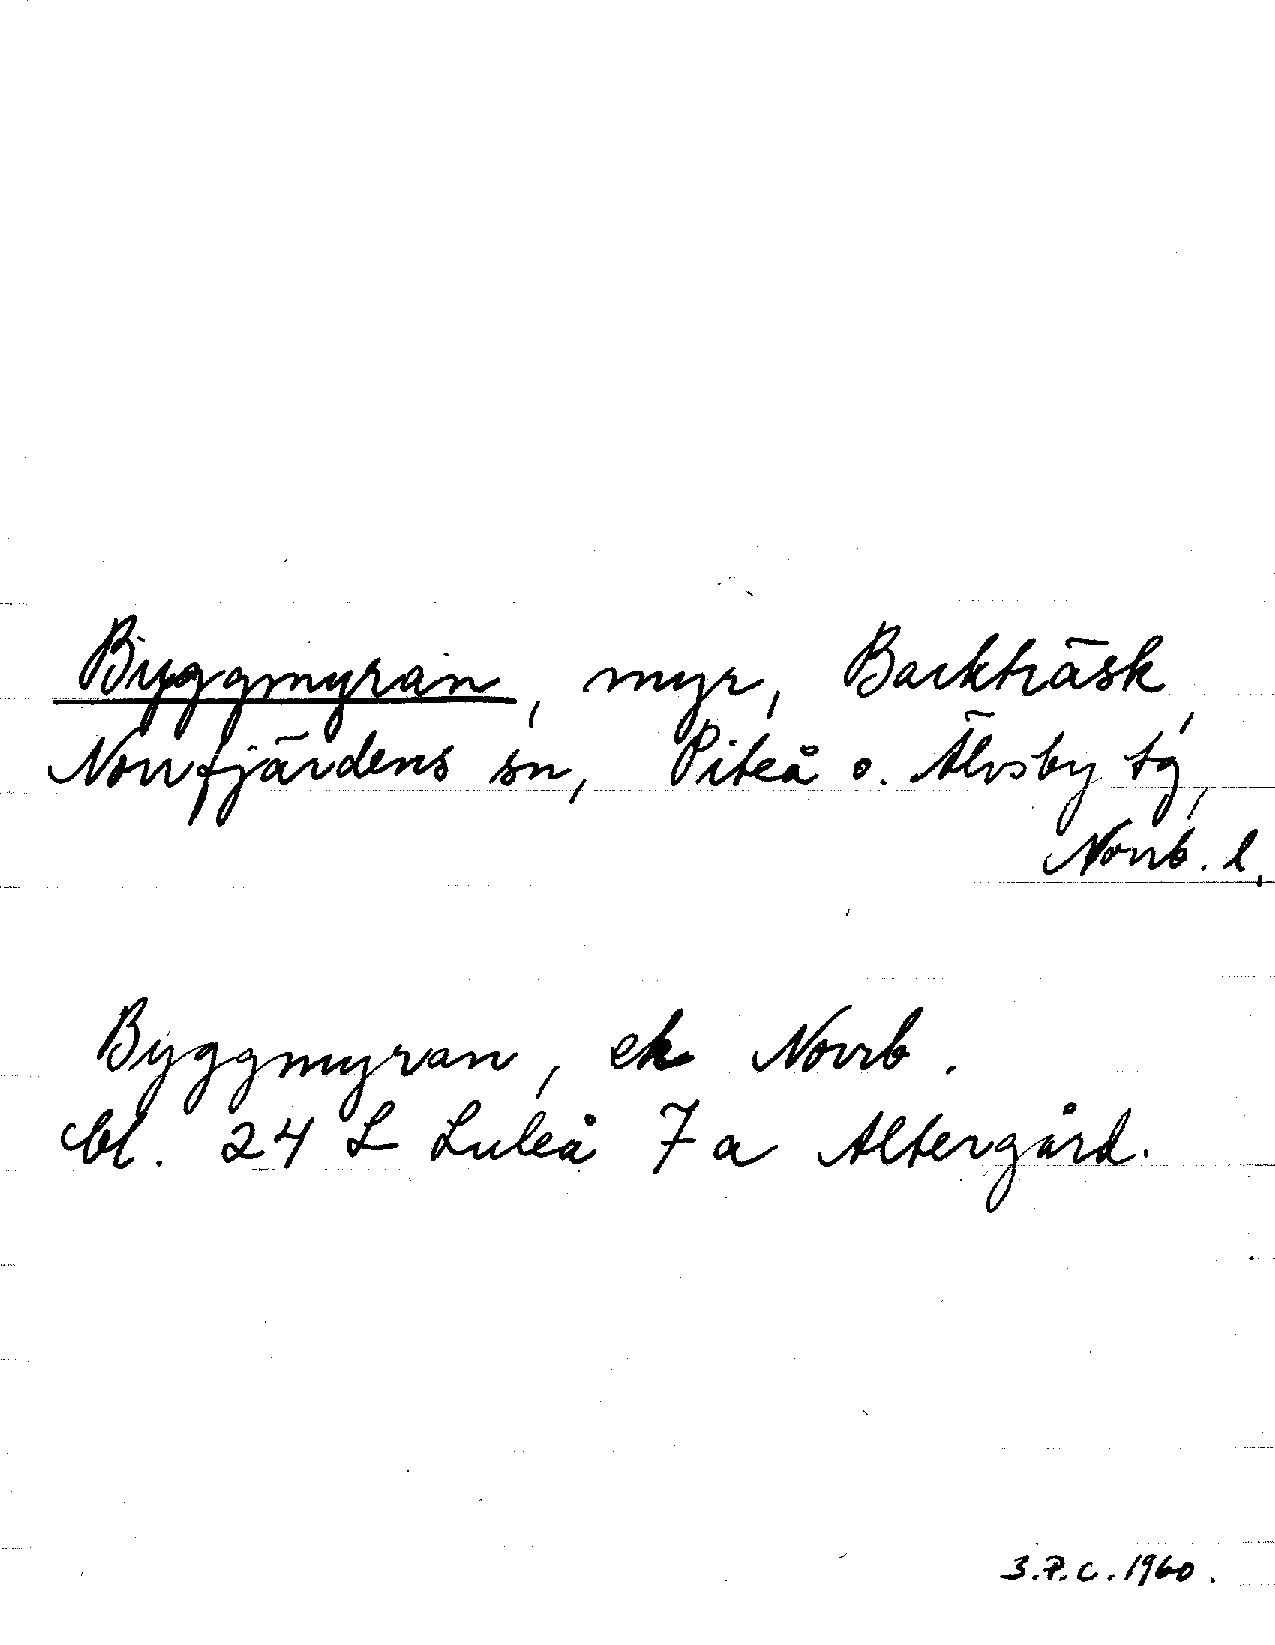 Byggmyran, myr, Backträsk,
Norrfjärdens sn, Piteå o. Älvsby tg,
Norrb. l.
Byggmyran, ek Norrb.
bl. 24 L Luleå 7 a Altergård.
1960.